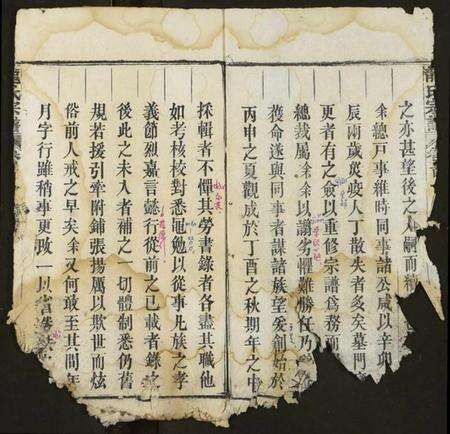 龍氏宗譜
之亦甚望後之人嗣而
余總戶事維時同事諸公咸以辛卯
辰兩歲災疫人丁散失者多矣墓門
更者有之僉以重修宗譜為務而
總裁屬余余以譾劣懼難勝任乃
獲命遂與同事者謀諸族望爰創始於
丙申之夏觀成於丁酉之秋期年之中
採輯者不憚其勞書錄者各盡其職他
如考核校對悉黽勉以從事凡族之孝
義節烈嘉言懿行從前之已載者錄之
後此之未入者補之一切體制悉仍舊
規若援引牽附鋪張揚厲以欺世而炫
俗前人戒之早矣余又何敢至其間年
月字行雖稍事更改一以
龍氏宗譜